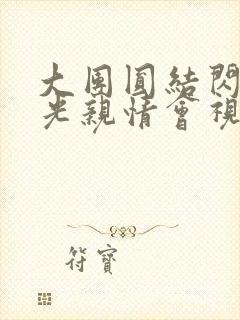 大團圓結閃
光親情會視
符寶